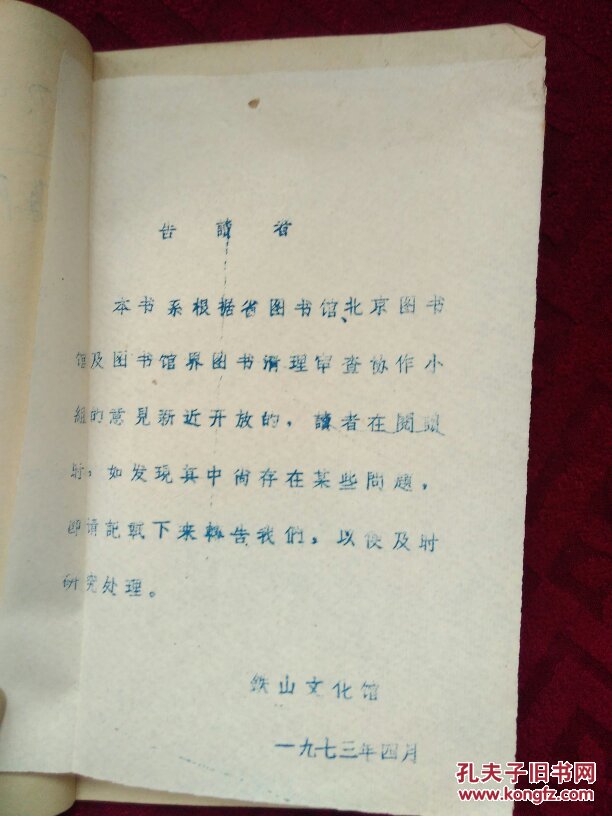 告讀者
本书系根据省图书馆、北京图书
馆及图书馆界图书清理审查协作小
組的意見新近开放的,讀者在閱讀
时,如发现其中尚存在某些問題,
即请記載下来報告我們,以便及时
研究处理。
鉄山文化馆
一九七三年四月
孔夫子旧书网
www.kongfz.com